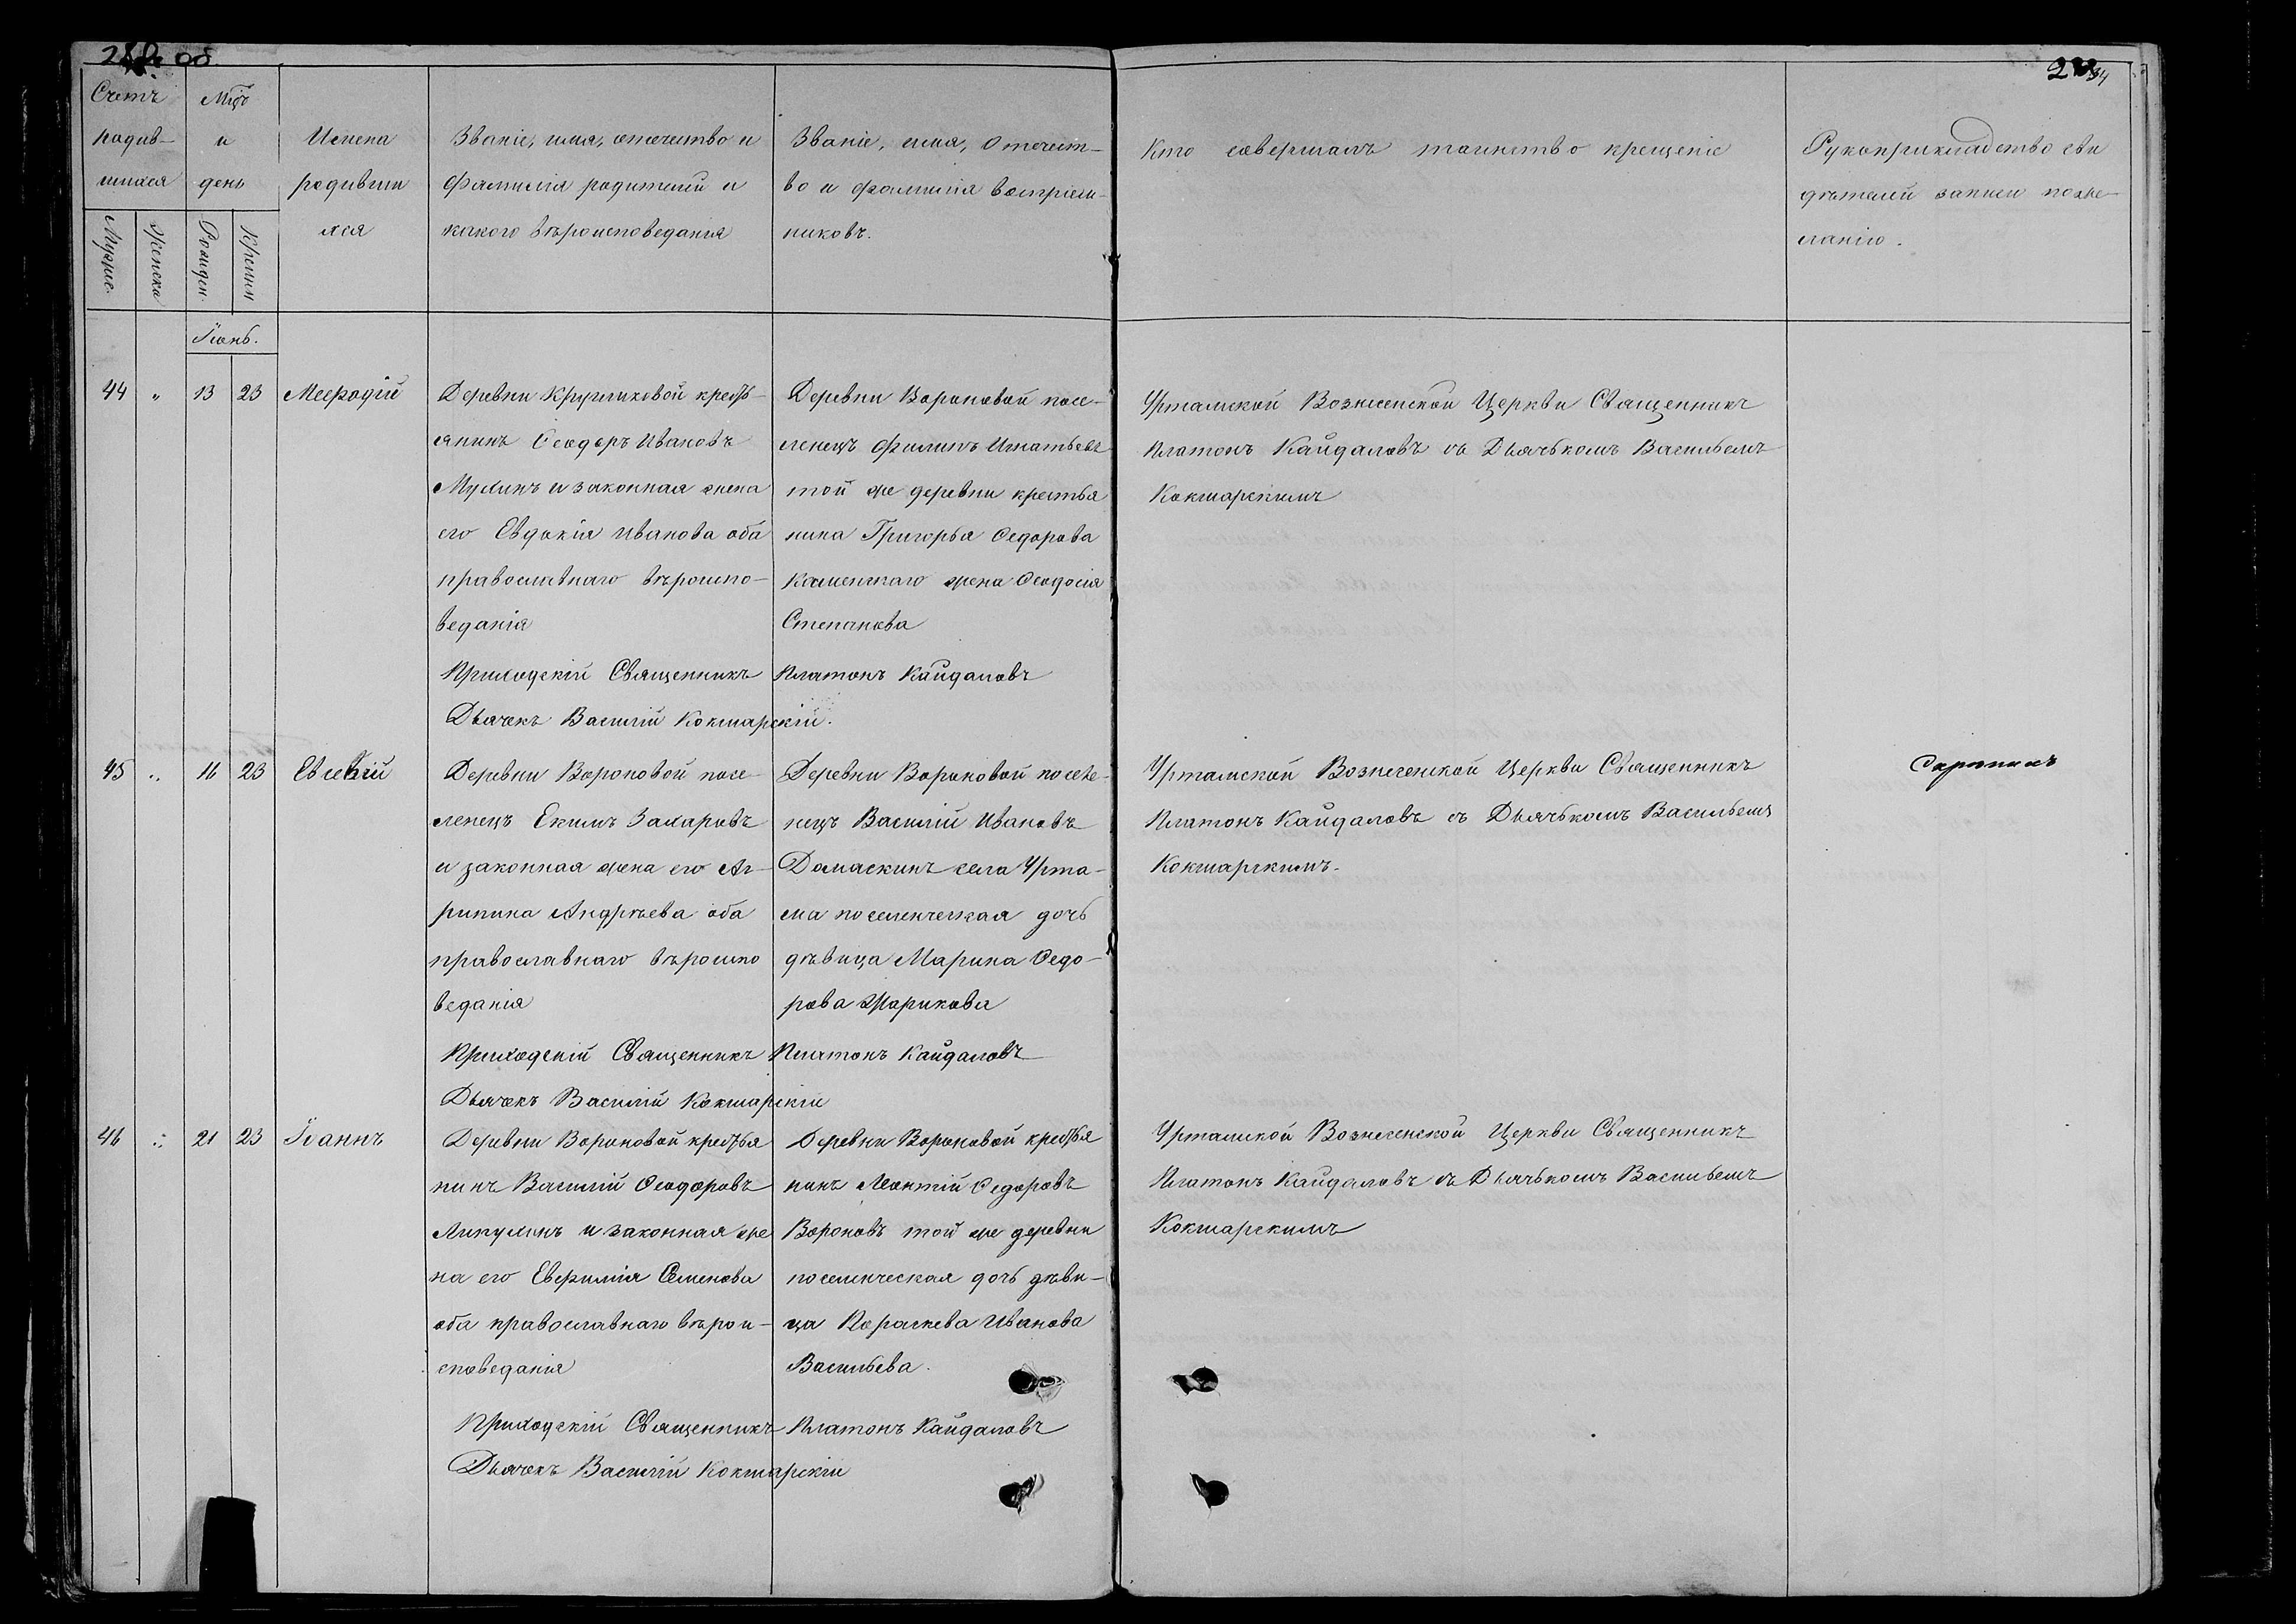 об.
Счетъ
родив-
шихся
Мужес.
Женска
Мцъ
и
день
Рожден.
Крещен
Имена
родивши
хся
Званіе, имя, отечество и
фамилія родителей и
какого вѣроисповеданія
Званіе, имя, отечест-
во и фамилія воспріем-
никовъ.
Кто совершалъ таинство крещеніе
Рукоприкладство сви
дѣтелей записи по же-
ланію.
Іюнь.
44 " 13 23 Меѳодій
Деревни Кругликовой кресть-
янинъ Ѳеодоръ Ивановъ
Мухинъ и законная жена
его Евдокія Иванова оба
православнаго вѣроиспо-
веданія
Деревни Вороновой посе-
ленецъ Филипъ Игнатьевъ
той же деревни крестья
нина Григорья Ѳедорова
Каменскаго жена Ѳеодосія
Степанова
Уртамской Вознесенской Церкви Священникъ
Платонъ Кайдаловъ съ Дьячькомъ Васильемъ
Кокшарскимъ
Приходскій Священникъ Платонъ Кайдаловъ
Дьячекъ Василій Кокшарскій.
45 " 16 23 Евсевій
Деревни Вороновой посе-
ленецъ Екимъ Захаровъ
и законная жена его Аг-
рипина Андрѣева оба
православнаго вѣроиспо
веданія
Деревни Вороновой поселе-
нецъ Василій Ивановъ
Домаскинъ села Урта-
ма поселенческая дочь
дѣвица Марина Ѳедо-
рова Жарикова
Уртамской Вознесенской Церкви Священникъ
Платонъ Кайдаловъ съ Дьячькомъ Васильемъ
Кокшарскимъ.
Приходскій Священникъ Платонъ Кайдаловъ
Дьячекъ Василій Кокшарскій
46 " 21 23 Іоаннъ
Деревни Вороновой крестья
нинъ Василій Ѳеодоровъ
Липухинъ и законная же
на его Евфимія Семенова
оба православнаго вѣрои-
споведанія
Деревни Вороновой крестья
нинъ Леонтій Ѳедоровъ
Вороновъ той же деревни
поселенческая дочь дѣви-
ца Пораскева Иванова
Васильева.
Уртамской Вознесенской Церкви Священникъ
Платонъ Кайдаловъ съ Дьячькомъ Васильемъ
Кокшарскимъ
Приходскій Священникъ Платонъ Кайдаловъ
Дьячекъ Василій Кокшарскій